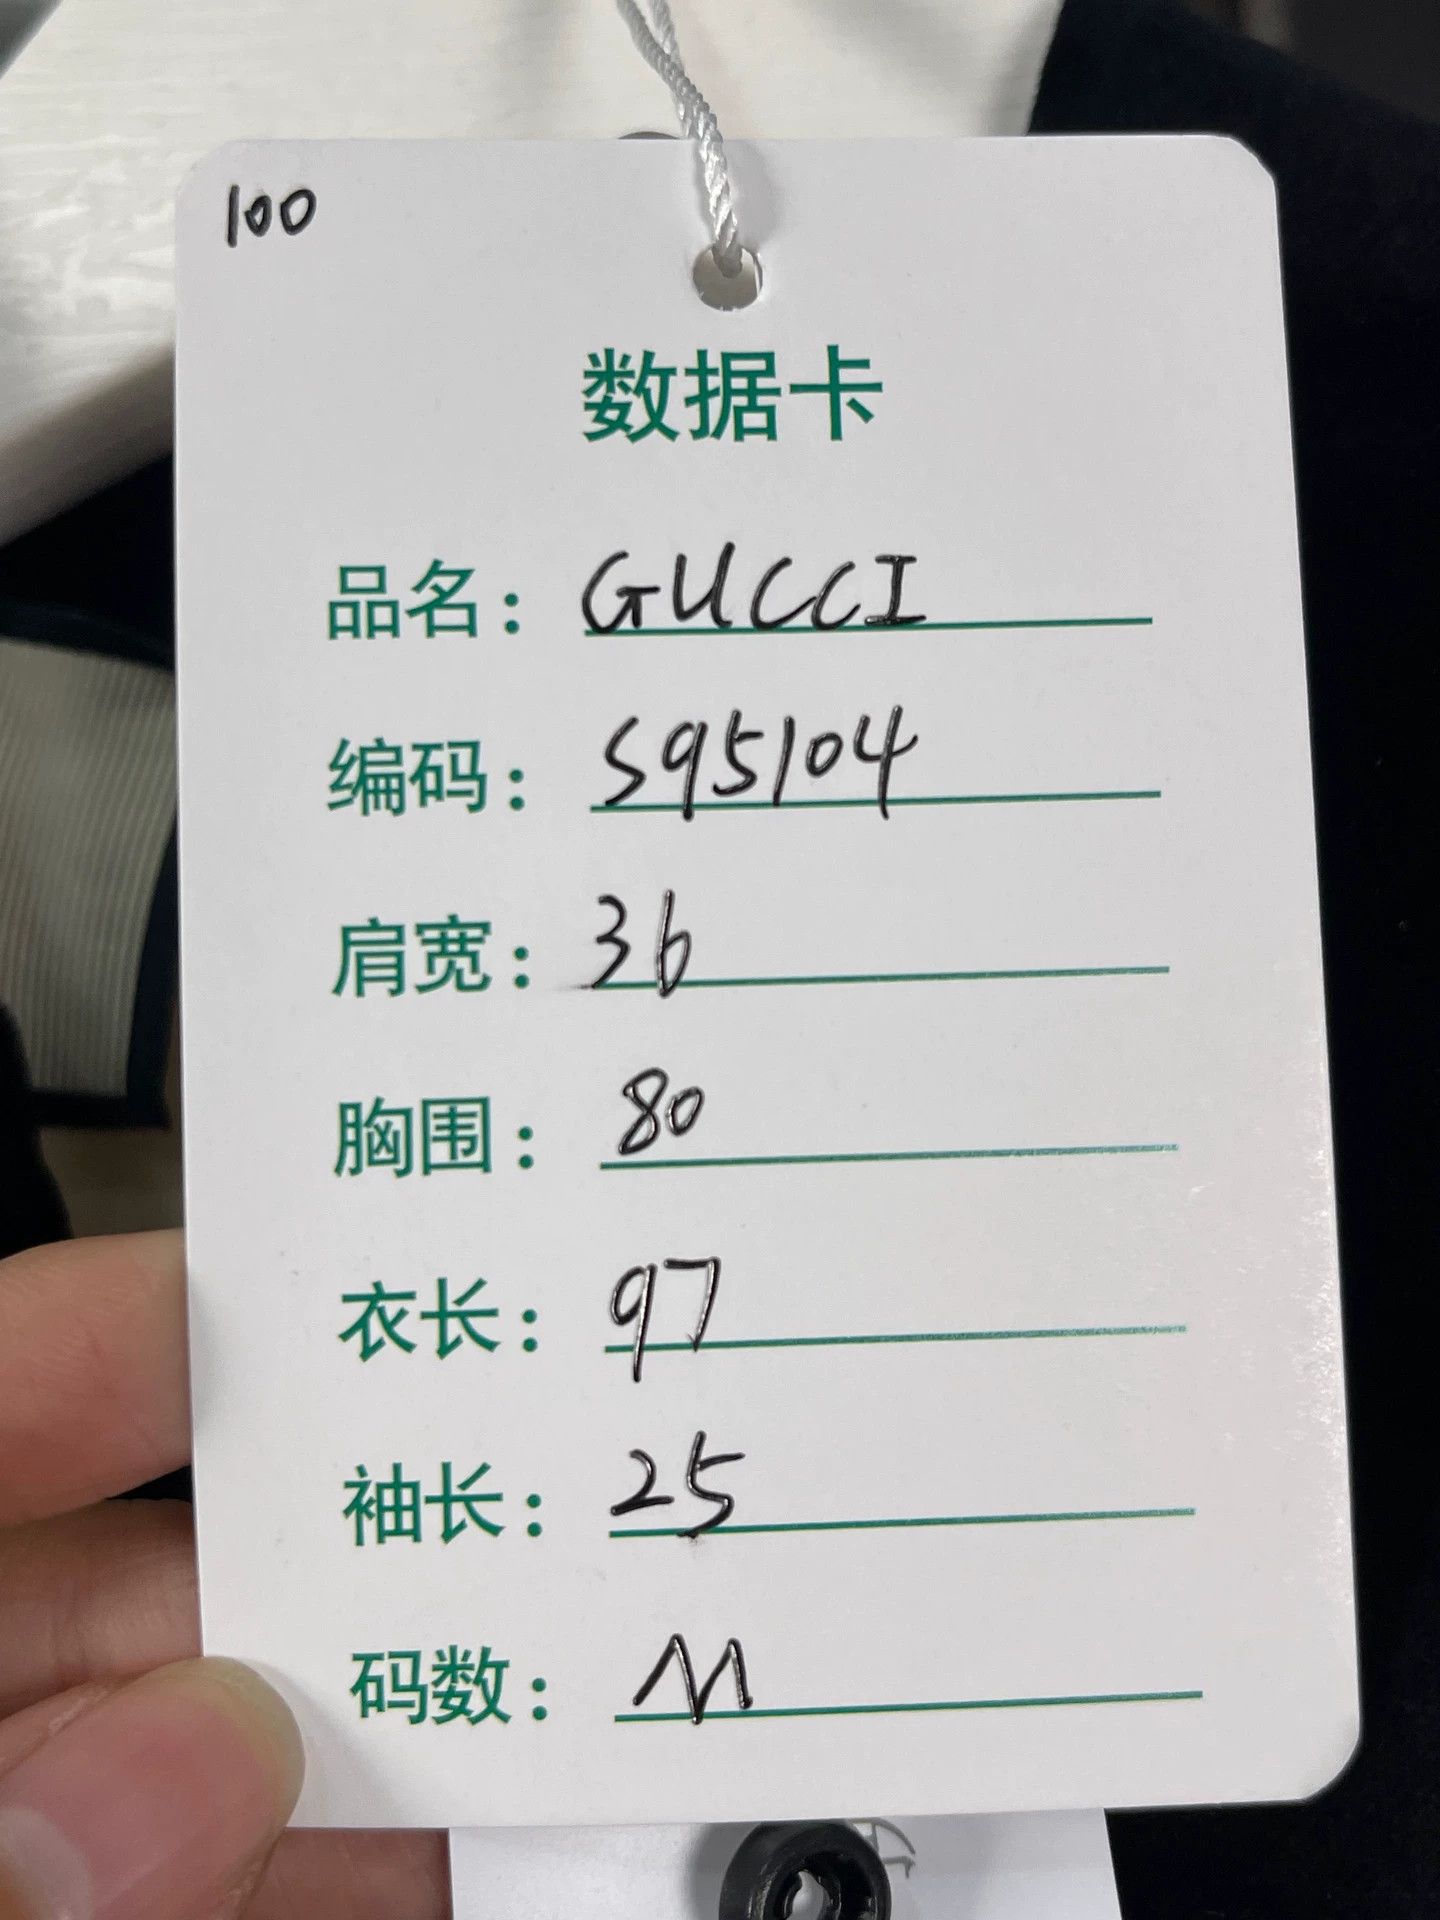 100
数据卡
品名：GUCCI
编码：S95104
肩宽：36
胸围：80
衣长：97
袖长：25
码数：M